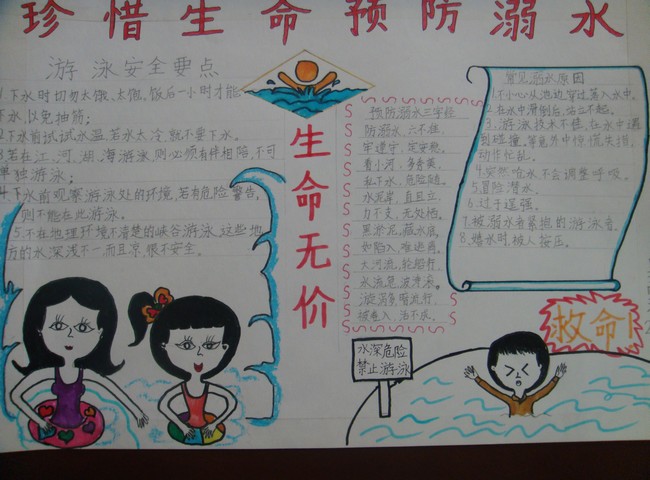 珍惜生命预防溺水
游泳安全要点
1.下水时切勿太饿、太饱。饭后一小时才能
下水,以免抽筋;
2.下水前试试水温,若水太冷,就不要下水。
3.若在江、河、湖、海游泳,则必须有伴相陪,不可
单独游泳;
4.下水前观察游泳处的环境,若有危险警告,
则不能在此游泳。
5.不在地理环境不清楚的峡谷游泳。这些地
方的水深浅不一,而且凉,很不安全。
生命无价
预防溺水三字经
防溺水,六不准,
牢遵守,
看小河,
私下水,危险随。
水泥岸,直且立,
力不支,无处
黑淤泥,藏水底,
如陷入,难逃离。
大河流,轮船行,
水流急,
漩涡多,暗流行,
被卷入,活不成。
常见溺水原因
1.不小心从池边、穿过落入水中。
2.在水中滑倒后,站立不起。
3.游泳技术不佳,在水中遇
到碰撞,等意外中惊慌失措,
动作忙乱。
4.突然呛水不会调整呼吸。
5.冒险潜水。
6.过于逞强。
7.被溺水者紧抱的游泳者。
8.嬉水时,被人按压。
救命!
水深危险
禁止游泳